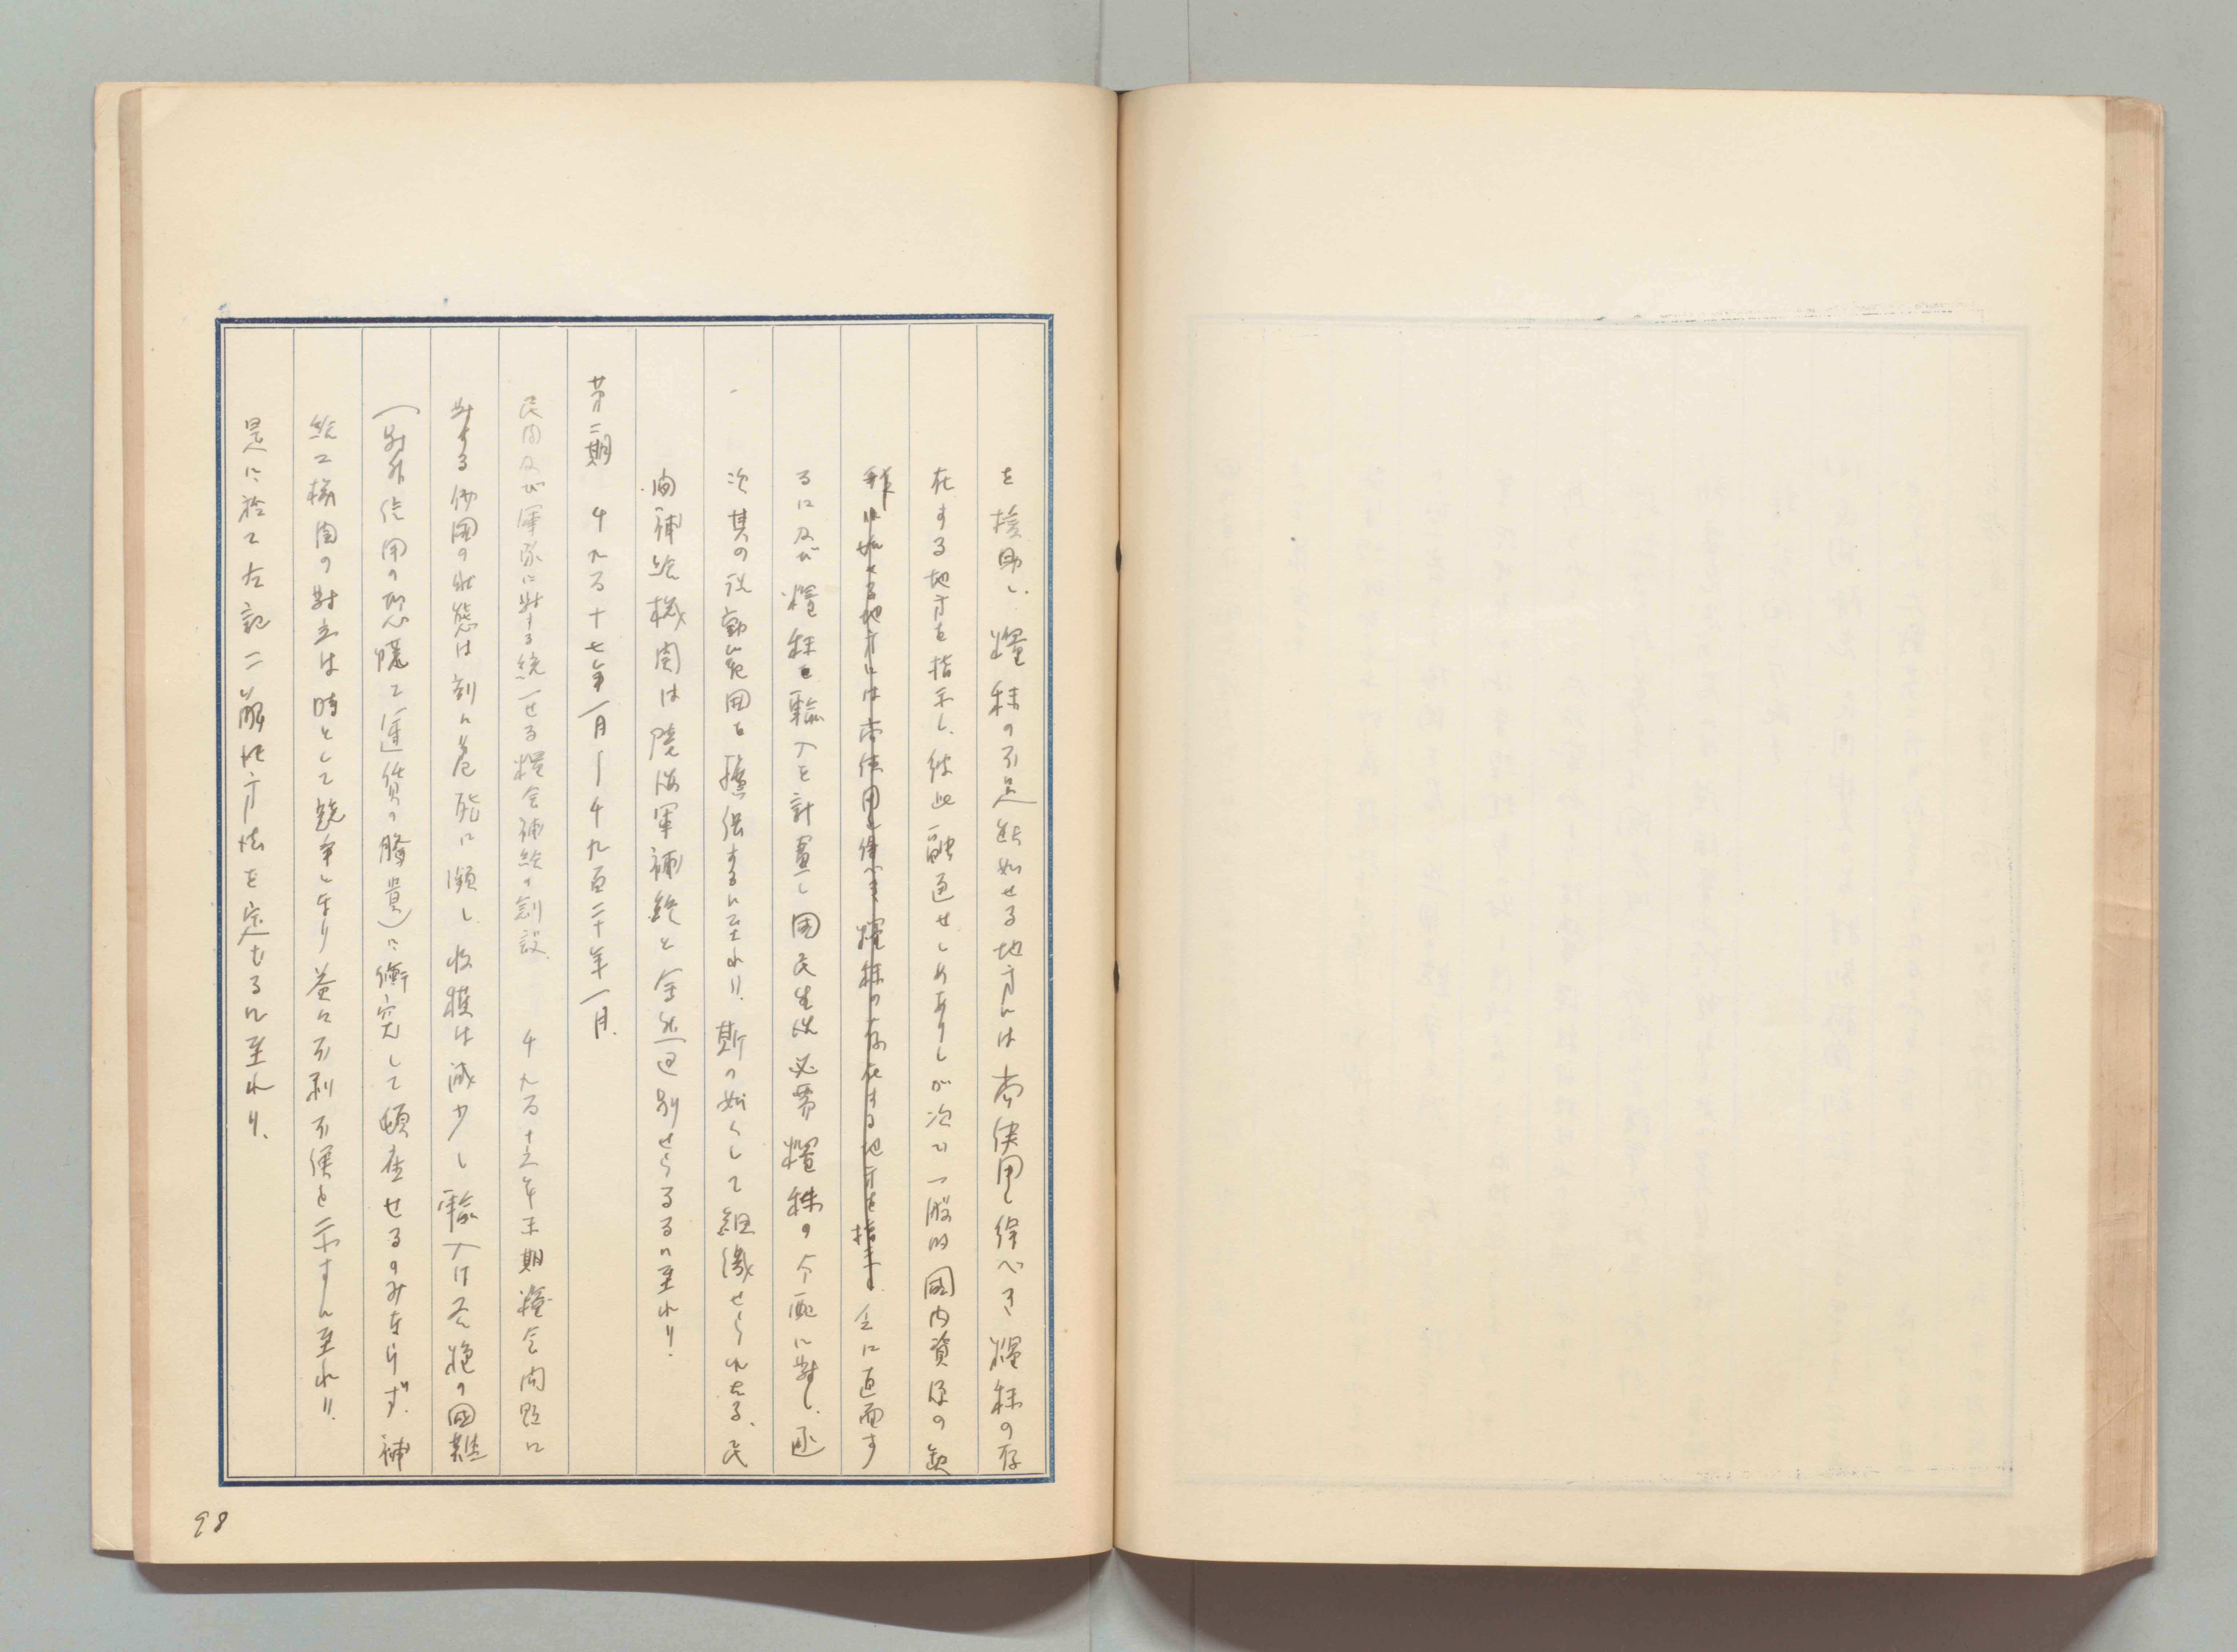 を援助し、糧秣の不足缺如せる地方には尚使用し得べき糧秣の存
在する地方を指示し、彼此融通せしめありしが次で一般的國内資源の缺
に直面す
るに及び糧秣の輸入を計畫し國民生活必需糧秣の分配に對し、逐
次其の活動範囲を擴張するに至れり。斯の如くして組織せられたる、民
間補給機関は陸海軍補給と全然区別せらるるに至れり。
第二期 千九百十七年一月〜千九百二十年一月.
民間及び軍隊に對する統一せる糧食補給の創設. 千九百十六年末期糧食問題に
對する佛国の状態は刻に危殆に瀕し、收穫は減少し輸入は各種の困難
(對外信用の恐慌で運賃の騰貴)に衝突して頓座せるのみならず、補
給二機関の對立は時として競争となり益々不利不便を示すに至れり.
是に於て左記二解決方法を定むるに至れり.
98